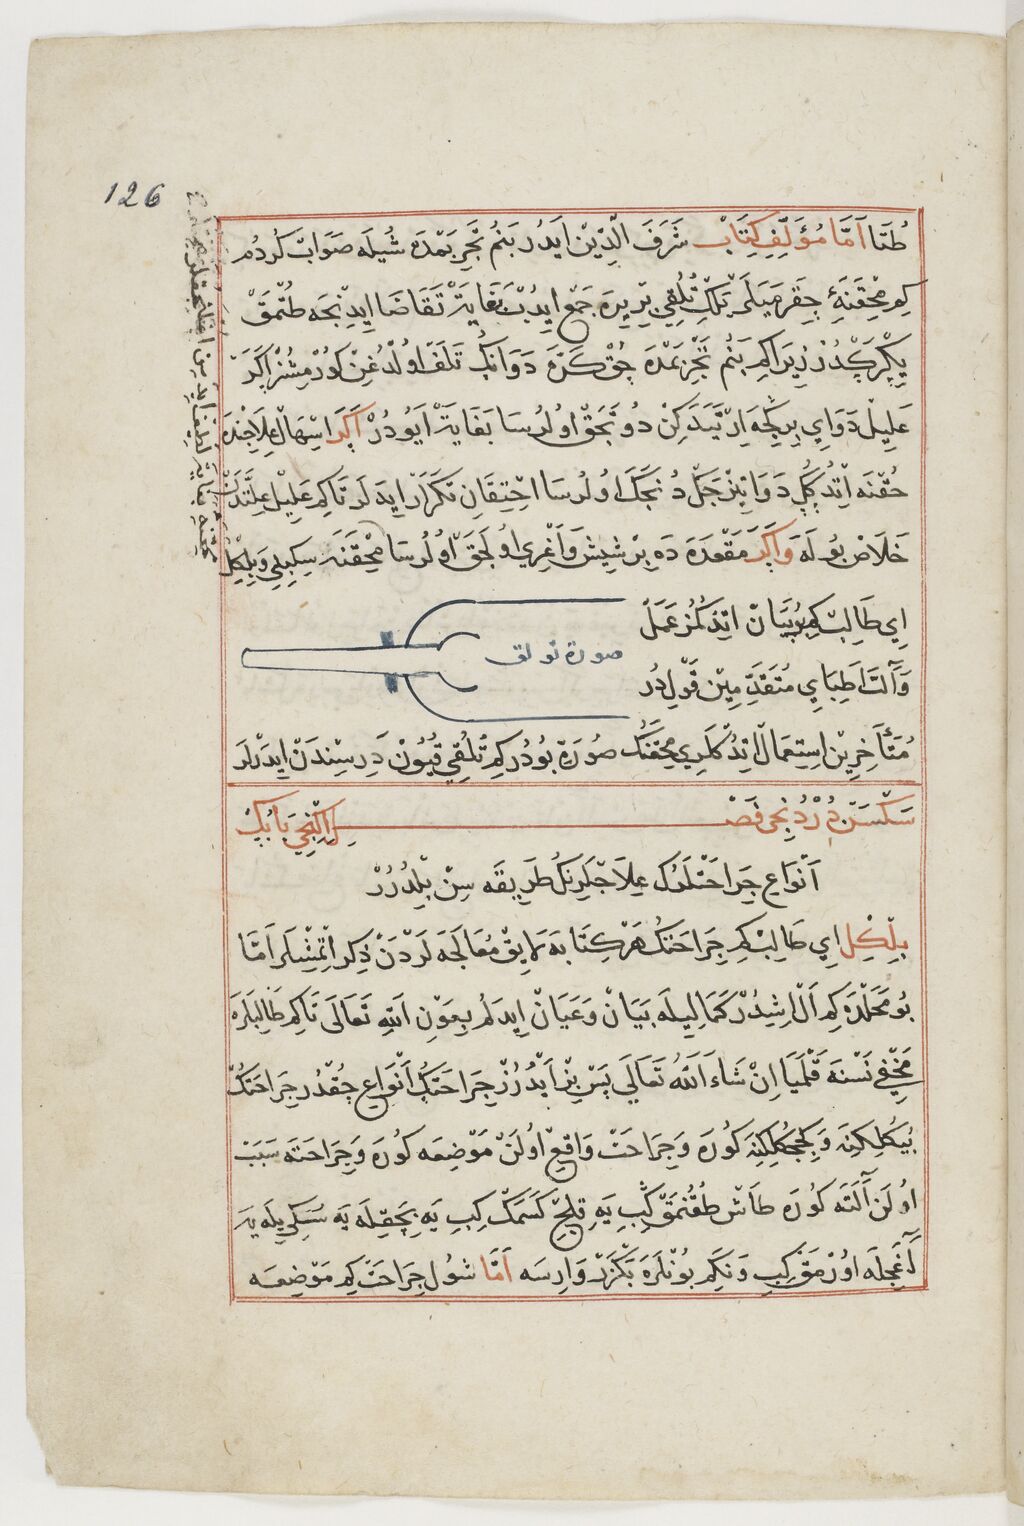 126
طُتَا اَمَّا مُؤَلِّفِ كِتَابْ شَرَفَ الدِّيْن ايدُر بَنُمْ تَجْرِبَمْدَه شُيلَه صَوَابْ كُردُم
كِم مِحْقَنَهٔ حِقَرْ مَيَلَرْ تُلُقِ بِرْ يِرَه جَمْعْ ايدُبْ بَغَايَتْ تَقَاضَا ايدِنْجَه طُتْمَقْ
كَرَكْدُرْ زِيرَا كِمْ بَنُمْ تَجْرِبَمْدَه چُقْ كَرَّه دَوَانُكْ تَلَفْ اولْدُغِنْ كورْمِشُزْ اَكَرْ
عَلِيلْ دَوَايِ بِرْ كِجَه دُتَجَقْ اولُرسَا بَغَايَتْ اَيُودُرْ اَكَرْ اِسْهَالْ عِلَاجِنْدَه
حُقْنَه اِتْدُكِ دَوَا تِيزْ جَكْ دُنَجَكْ اولُرسَا اِحْتِقَانِ تَكْرَارْ ايدَلَر تَا كِم عَلِيلْ عِلَّتْدَنْ
خَلَاصْ بُولَه وَاَكَرْ مَقْعَدَه دَه بِرْ شِيشْ وَاَغْرِي اولَجَقْ اولُرسَا مِحْقَنَه سِكِبِلِ وَبِلْكِلْ
اِي طَالِبْ كِم بُو بَيَانْ اِتْدُكُمُز عَمَلْ
صورة تولق
وَآلَتْ اَطِبَّايِ مُتَقَدِّمِيْن قَوْلِ دُر
مُتَأَخِّرِيْن اِسْتِعْمَالْ اِتْدُكْلَرِي مِحْقَنَنُكْ صُورَتِ بُودُر كِم تُلُقِ قُيُونْ دَرِسِنْدَنْ ايدَرْلَر
سَكْسَنْ دُرْدُنْجِي فَصْل اِكِنْجِي بَابُكْ
اَنْوَاعِ جِرَاحَتْلَرُكْ عِلَاجْلَرِنُكْ طَرِيقَه سِنْ بِلْدُرُرْ
بِلْكِلْ اِي طَالِبْ كِم جِرَاحَتُكْ هَرْ كِتَابَه لَايِقْ مُعَالَجَه لَرْدَنْ ذِكْر اِتْمِشْلَر اَمَّا
بُو مَحَلْدَه كِم اَلْ اِشِيدُرْ كَمَالِيلَه بَيَانْ وَعَيَانْ ايدَلُم بِعَوْنِ اَللهِ تَعَالَى تَا كِم طَالِبْلَرَه
مَخْفِي نَسْنَه قَلْمَيَا اِنْ شَاءَ اَللهُ تَعَالَي پَسْ بِزْ اَيْدُرُزْ جِرَاحَتُكْ اَنْوَاعِ چُقْدُر جِرَاحَتُكْ
بُيُكْلِكِنَه وَكِچِجُكْلِكِنَه كُورَه وَجِرَاحَتْ وَاقِعْ اولَنْ مَوْضِعَه كُورَه وَجِرَاحَتَه سَبَبْ
اولَن آلَتَه كُورَه طَاشْ طُقُنْمَقْ كِبِ يَه قِلِجْ كَسْمَكْ كِبِ يَه بِچَقِلَه يَه سُنكِويِلَه يَه
آغَجِلَه اورْمَقْ كِبِ وَنَكِمْ بُونْلَرَه بَكْزَرْ وَارِسَه اَمَّا شُول جِرَاحَتْ كِم مَوْضِعَه